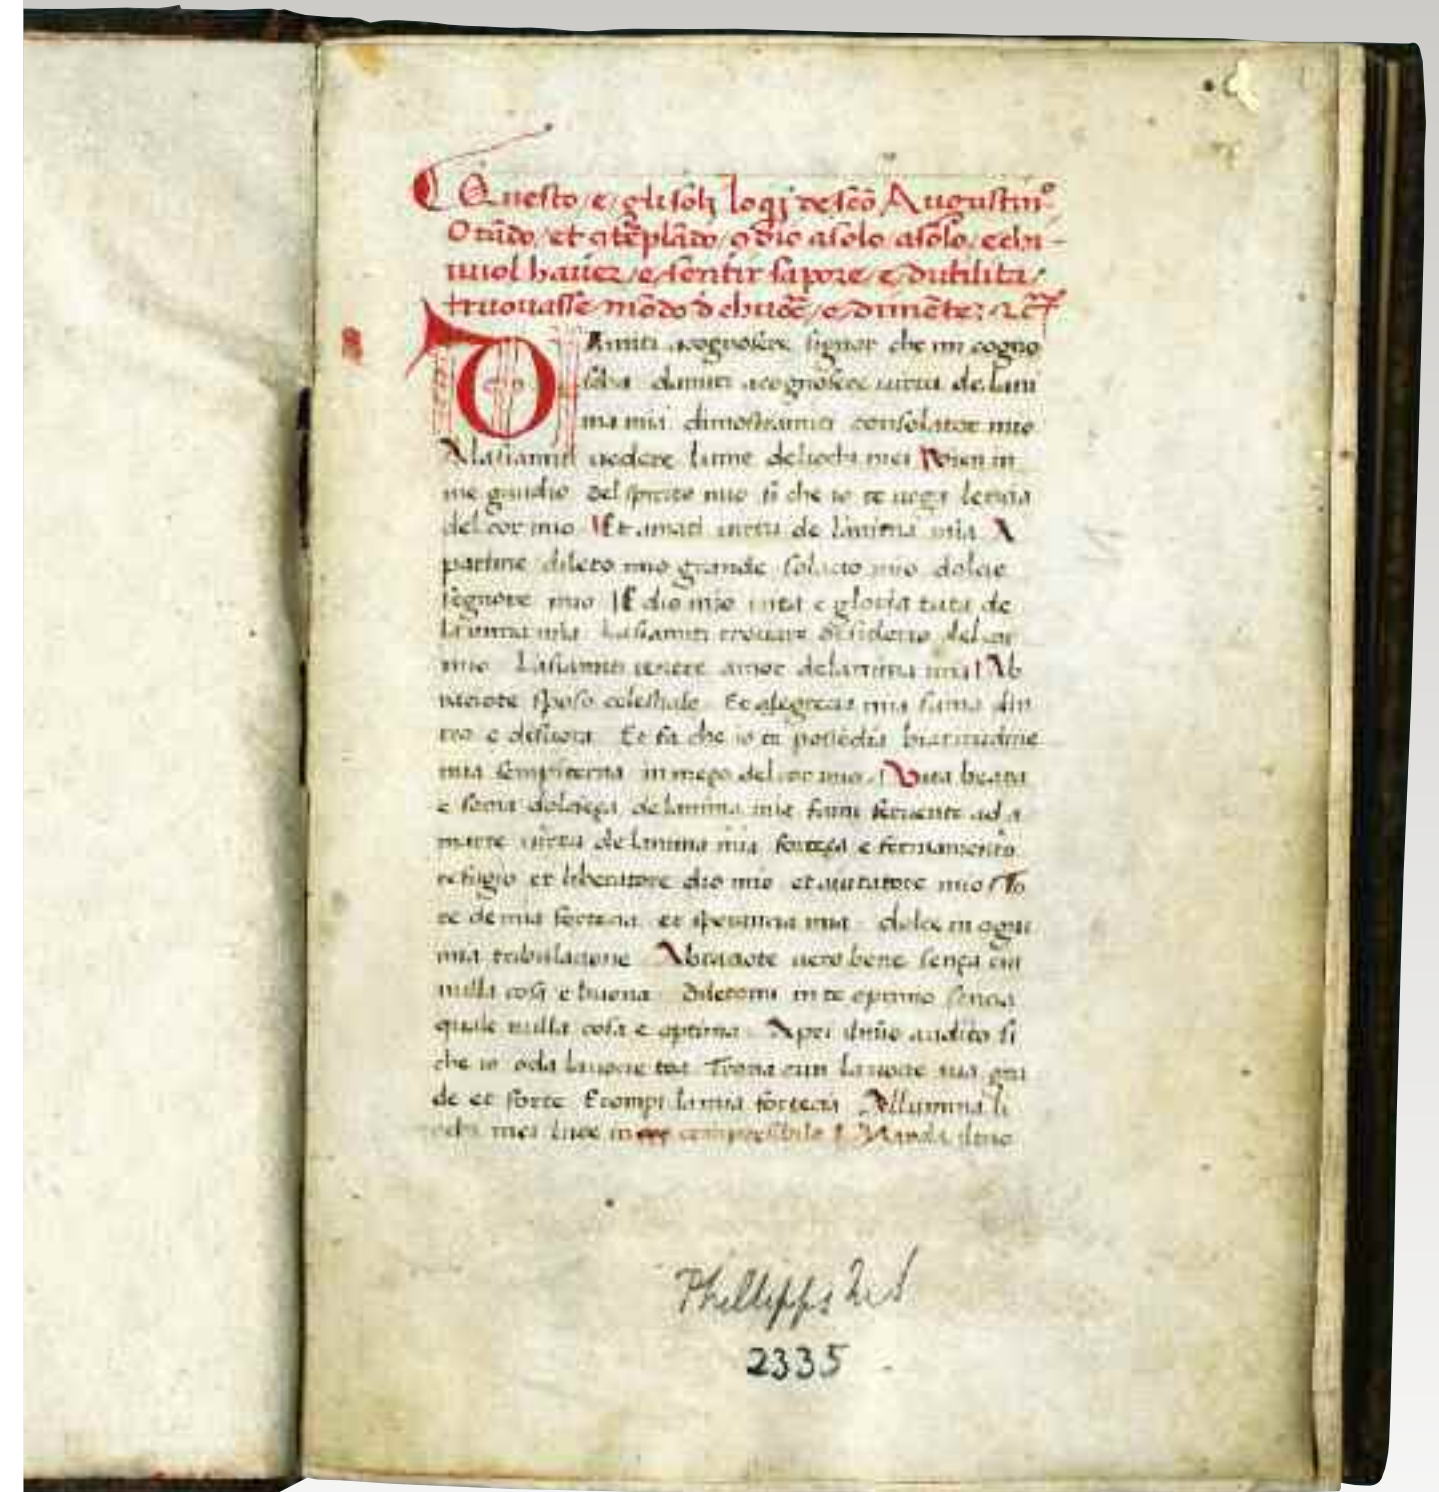 Questo e gli soli loqj de scō Augustinº
Orādo et ꝯtēplādo ꝯ dio a solo a solo. e chi
vuol haver e sentir sapore e d utilita
truouasse mōdo d chuoē e dimēte:
Amiti cognoscere signor che mi cogno
damiti cognoscere uirtu de lani
ma mia dimostramiti consolator mio
Alasiamiti uedere lume deliochi mei Vien in
me gaudio del spirito mio si che io te uega leticia
del cor mio Et amati uirtu de lanima mia A
partine dileto mio grande solacio mio dolcie
segnore mio Et dio mio uita e gloria tuta de
lanima mia Lasiamiti trouare desiderio del cor
mio Lasiamiti tenere amor delanima mia Ab
raciote sposo celestiale Et alegrecia mia suma din
tro e difuora Et fa che io ti possedia biatitudine
mia sempiterna in meço del cor mio Vita beata
e soma dolcieça delanima mia fami feruente ad a
marte uirtu delanima mia forteça e fermamento
refugio et liberatore dio mio et aiutatore mio To
re de mia fortecia et sperancia mia dolce in ogni
mia tribulacione Abraciote uero bene sença cui
nulla cosa e buona Diletomi in te optimo sencia
quale nulla cosa e optima Apri audito si
che io oda lauocie toa Trona cun lauocie tua grā
de et forte Erompi lamia fortecia Allumina li
ochi mei luce in comprensibile Manda
Phillipps MS
2335